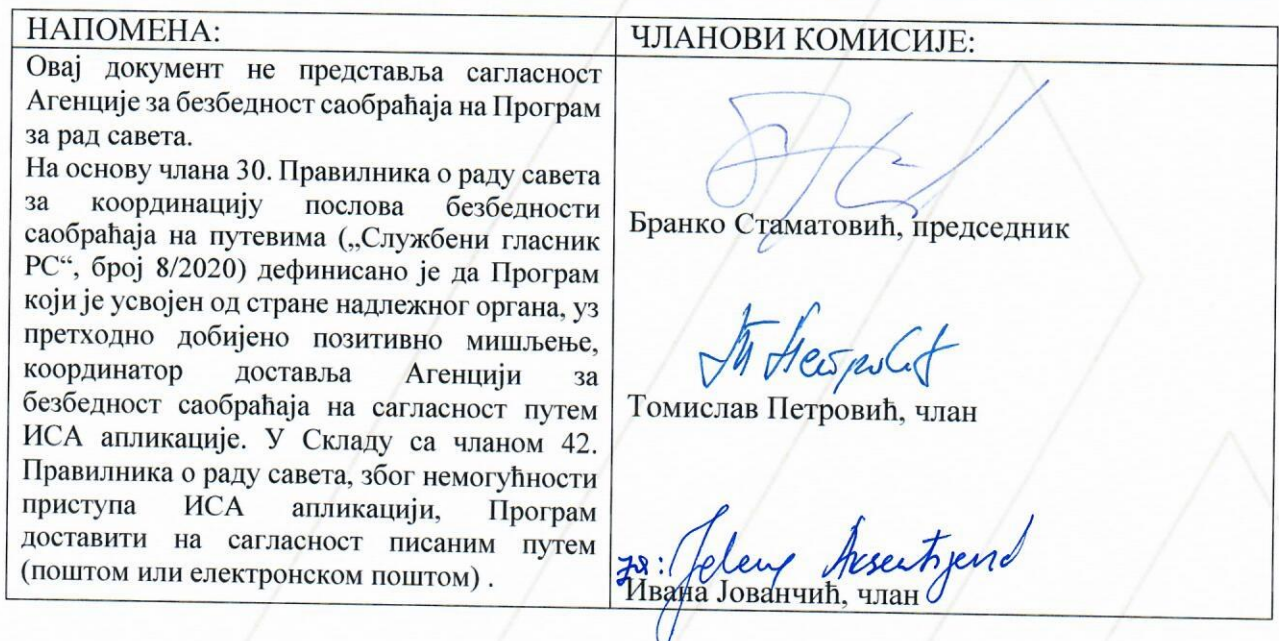 НАПОМЕНА:
Овај документ не представља сагласност
Агенције за безбедност саобраћаја на Програм
за рад савета.
На основу члана 30. Правилника о раду савета
за координацију послова безбедности
саобраћаја на путевима („Службени гласник
РС“, број 8/2020) дефинисано је да Програм
који је усвојен од стране надлежног органа, уз
претходно добијено позитивно мишљење,
координатор доставља Агенцији за
безбедност саобраћаја на сагласност путем
ИСА апликације. У Складу са чланом 42.
Правилника о раду савета, због немогућности
приступа ИСА апликацији, Програм
доставити на сагласност писаним путем
(поштом или електронском поштом) .
ЧЛАНОВИ КОМИСИЈЕ:
Бранко Стаматовић, председник
Томислав Петровић, члан
за: Jelena
Ивана Јованчић, члан